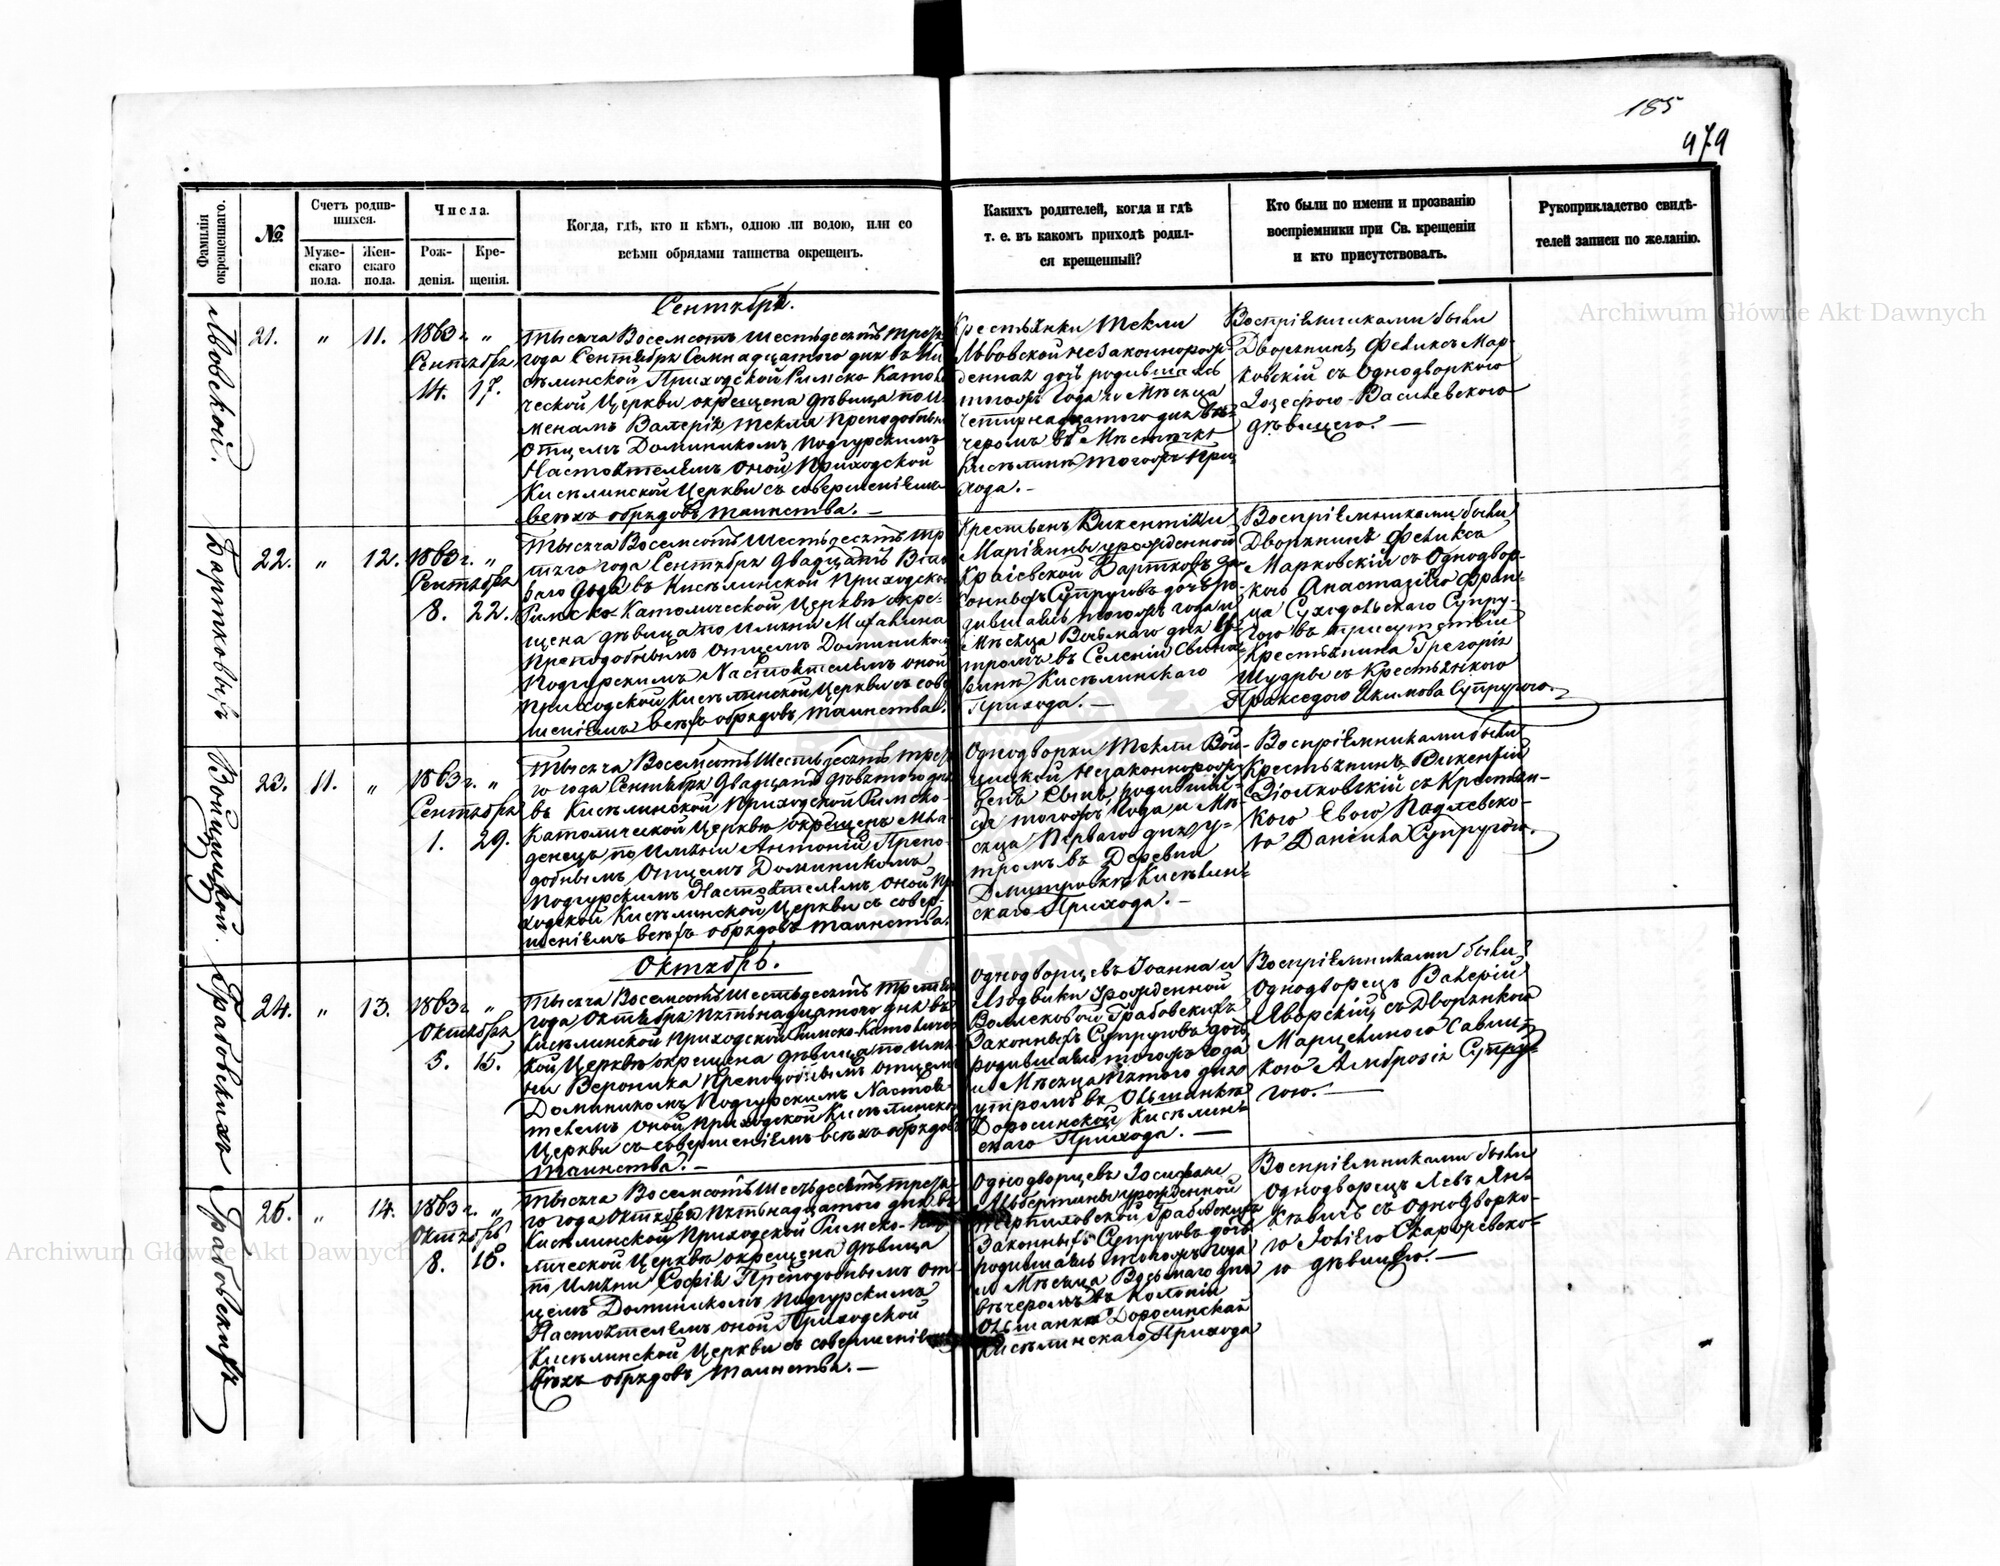 185
479
Фамилія окрещеннаго.
№.
Счетъ родив-
шихся.
Муже-
скаго
пола.
Жен-
скаго
пола.
Числа.
Рож-
денія.
Кре-
щенія.
Когда, гдѣ, кто и кѣмъ, одною ли водою, или со
всѣми обрядами таинства окрещенъ.
Какихъ родителей, когда и гдѣ
т. е. въ какомъ приходѣ родил-
ся крещенный?
Кто были по имени и прозванію
воспріемники при Св. крещеніи
и кто присутствовалъ.
Рукоприкладство свидѣ-
телей записи по желанію.
Archiwum Główne Akt Dawnych
Сентябрь.
Львовской.
21. " 11. 1863 г. "
Сентября
14. 17.
Тысяча Восемсотъ Шестьдесятъ третя
года Сентября Семнадцатого дня въ Ки
сѣлинской Приходской Римско Католи
ческой Церкви окрещена дѣвица по и
менамъ Валерія Текля Преподобным
Отцемъ Доминикомъ Подгурскимъ
Настоятелемъ оной Приходской
Кисѣлинской Церкви съ совершеніемъ
всѣхъ обрядовъ таинства. —
Крестьянки Текли
Львовской незаконнорож-
денная дочь родившаясь
тогожъ года и Мѣсяца
Четырнадцатого дня ве-
черомъ въ Мѣстечкѣ
Кисѣлинѣ тогожъ При-
хода. —
Воспріемниками были
Дворянинъ Феликсъ Мар-
ковскій съ Однодворкою
Іозефою Васылевскою
дѣвицею. —
Бартковыхъ
22. " 12. 1863 г. "
Сентября
8. 22.
Тысяча Восемсотъ Шестьдесятъ тре
тяго года Сентября Двадцать Втор
раго дня въ Кисѣлинской Приходской
Римско-Католической Церкви окре-
щена дѣвица по имени Михалина
Преподобнымъ Отцемъ Доминикомъ
Подгурскимъ Настоятелемъ оной
Приходской Кисѣлинской Церкви съ совер
шеніемъ всѣхъ обрядовъ таинства.
Крестьянъ Викентія и
Маріянны урожденной
Краіевской Бартковъ За-
конныхъ Супруговъ дочь ро-
дившаясь тогожъ года и
Мѣсяца Восьмаго дня у-
тромъ въ Селеніи Свина-
ринѣ Кисѣлинского
Прихода. —
Воспріемниками были
Дворянинъ Феликсъ
Марковскій съ Однодвор-
кою Анастазіею Фран-
ца Суходольского Супру-
гою въ присутствіи
Крестьянина Грегорія
Щудры съ Крестьянкою
Пракседою Якимова Супругою.
Войцицкой.
23. 11. " 1863 г. "
Сентября
1. 29.
Тысяча Восемсотъ Шестьдесятъ трет
го года Сентября Двадцать девятого дня
въ Кисѣлинской Приходской Римско-
Католической Церкви окрещенъ Мла
денецъ по имени Антоній Препо-
добнымъ Отцемъ Доминикомъ
Подгурскимъ Настоятелемъ оной При
ходской Кисѣлинской Церкви съ совер-
шеніемъ всѣхъ обрядовъ таинства.
Однодворки Текли Вой-
цицкой Незаконнорож-
денъ Сынъ родившій-
ся тогожъ Года и Мѣ-
сяца Перваго дня у-
тромъ въ Деревни
Дмитровкѣ Кисѣлин-
скаго Прихода. —
Воспріемниками были
Крестьянинъ Викентій
Зіолковскій съ Крестьян-
кою Евою Падлевско-
го Даніила Супругою.
Октябрь.
Грабовскихъ
24. " 13. 1863 г. "
Октября
5. 15.
Тысяча Восемсотъ Шестьдесятъ Третьяго
года Октября Пятьнадцатого дня въ
Кисѣлинской Приходской Римско-Католичес
кой Церкви окрещена дѣвица по име
ни Вероника Преподобнымъ Отцемъ
Доминикомъ Подгурскимъ Настоя-
телемъ оной Приходской Кисѣлинской
Церкви съ совершеніемъ всѣхъ обрядовъ
таинства. —
Однодворцевъ Іоанна и
Людвики Урожденной
Грабовскихъ
Законныхъ Супруговъ дочь
родившаясь тогожъ года
и Мѣсяца Пятого дня
утромъ въ Ольшанкѣ
Доросинской Кисѣлин-
скаго Прихода. —
Воспріемниками были
Однодворецъ Валерій
Яворскій съ Дворянкою
Марцелиною Савиц-
кого Амброзія Супру-
гою. —
Грабовскихъ
25. " 14. 1863 г. "
Октябрь
8. 15.
Тысяча Восемсотъ Шестьдесятъ трет
го года Октября Пятьнадцатого дня въ
Кисѣлинской Приходской Римско-Като
лической Церкви окрещена дѣвица
по имени Софія Преподобнымъ От-
цемъ Доминикомъ Подгурскимъ
Настоятелемъ оной Приходской
Кисѣлинской Церкви съ совершеніемъ
всѣхъ обрядовъ таинства. —
Однодворцевъ Іосифа и
Альбертины урожденной
Грабовскихъ
Законныхъ Супруговъ дочь
родившаясь тогожъ года
и Мѣсяца Восьмаго дня
вечеромъ въ Колоніи
Ольшанкѣ Доросинской
Кисѣлинскаго Прихода
Воспріемниками были
Однодворецъ Левъ Ян-
кѣвичъ съ Однодворко-
ю
ю дѣвицею. —
Archiwum Główne Akt Dawnych